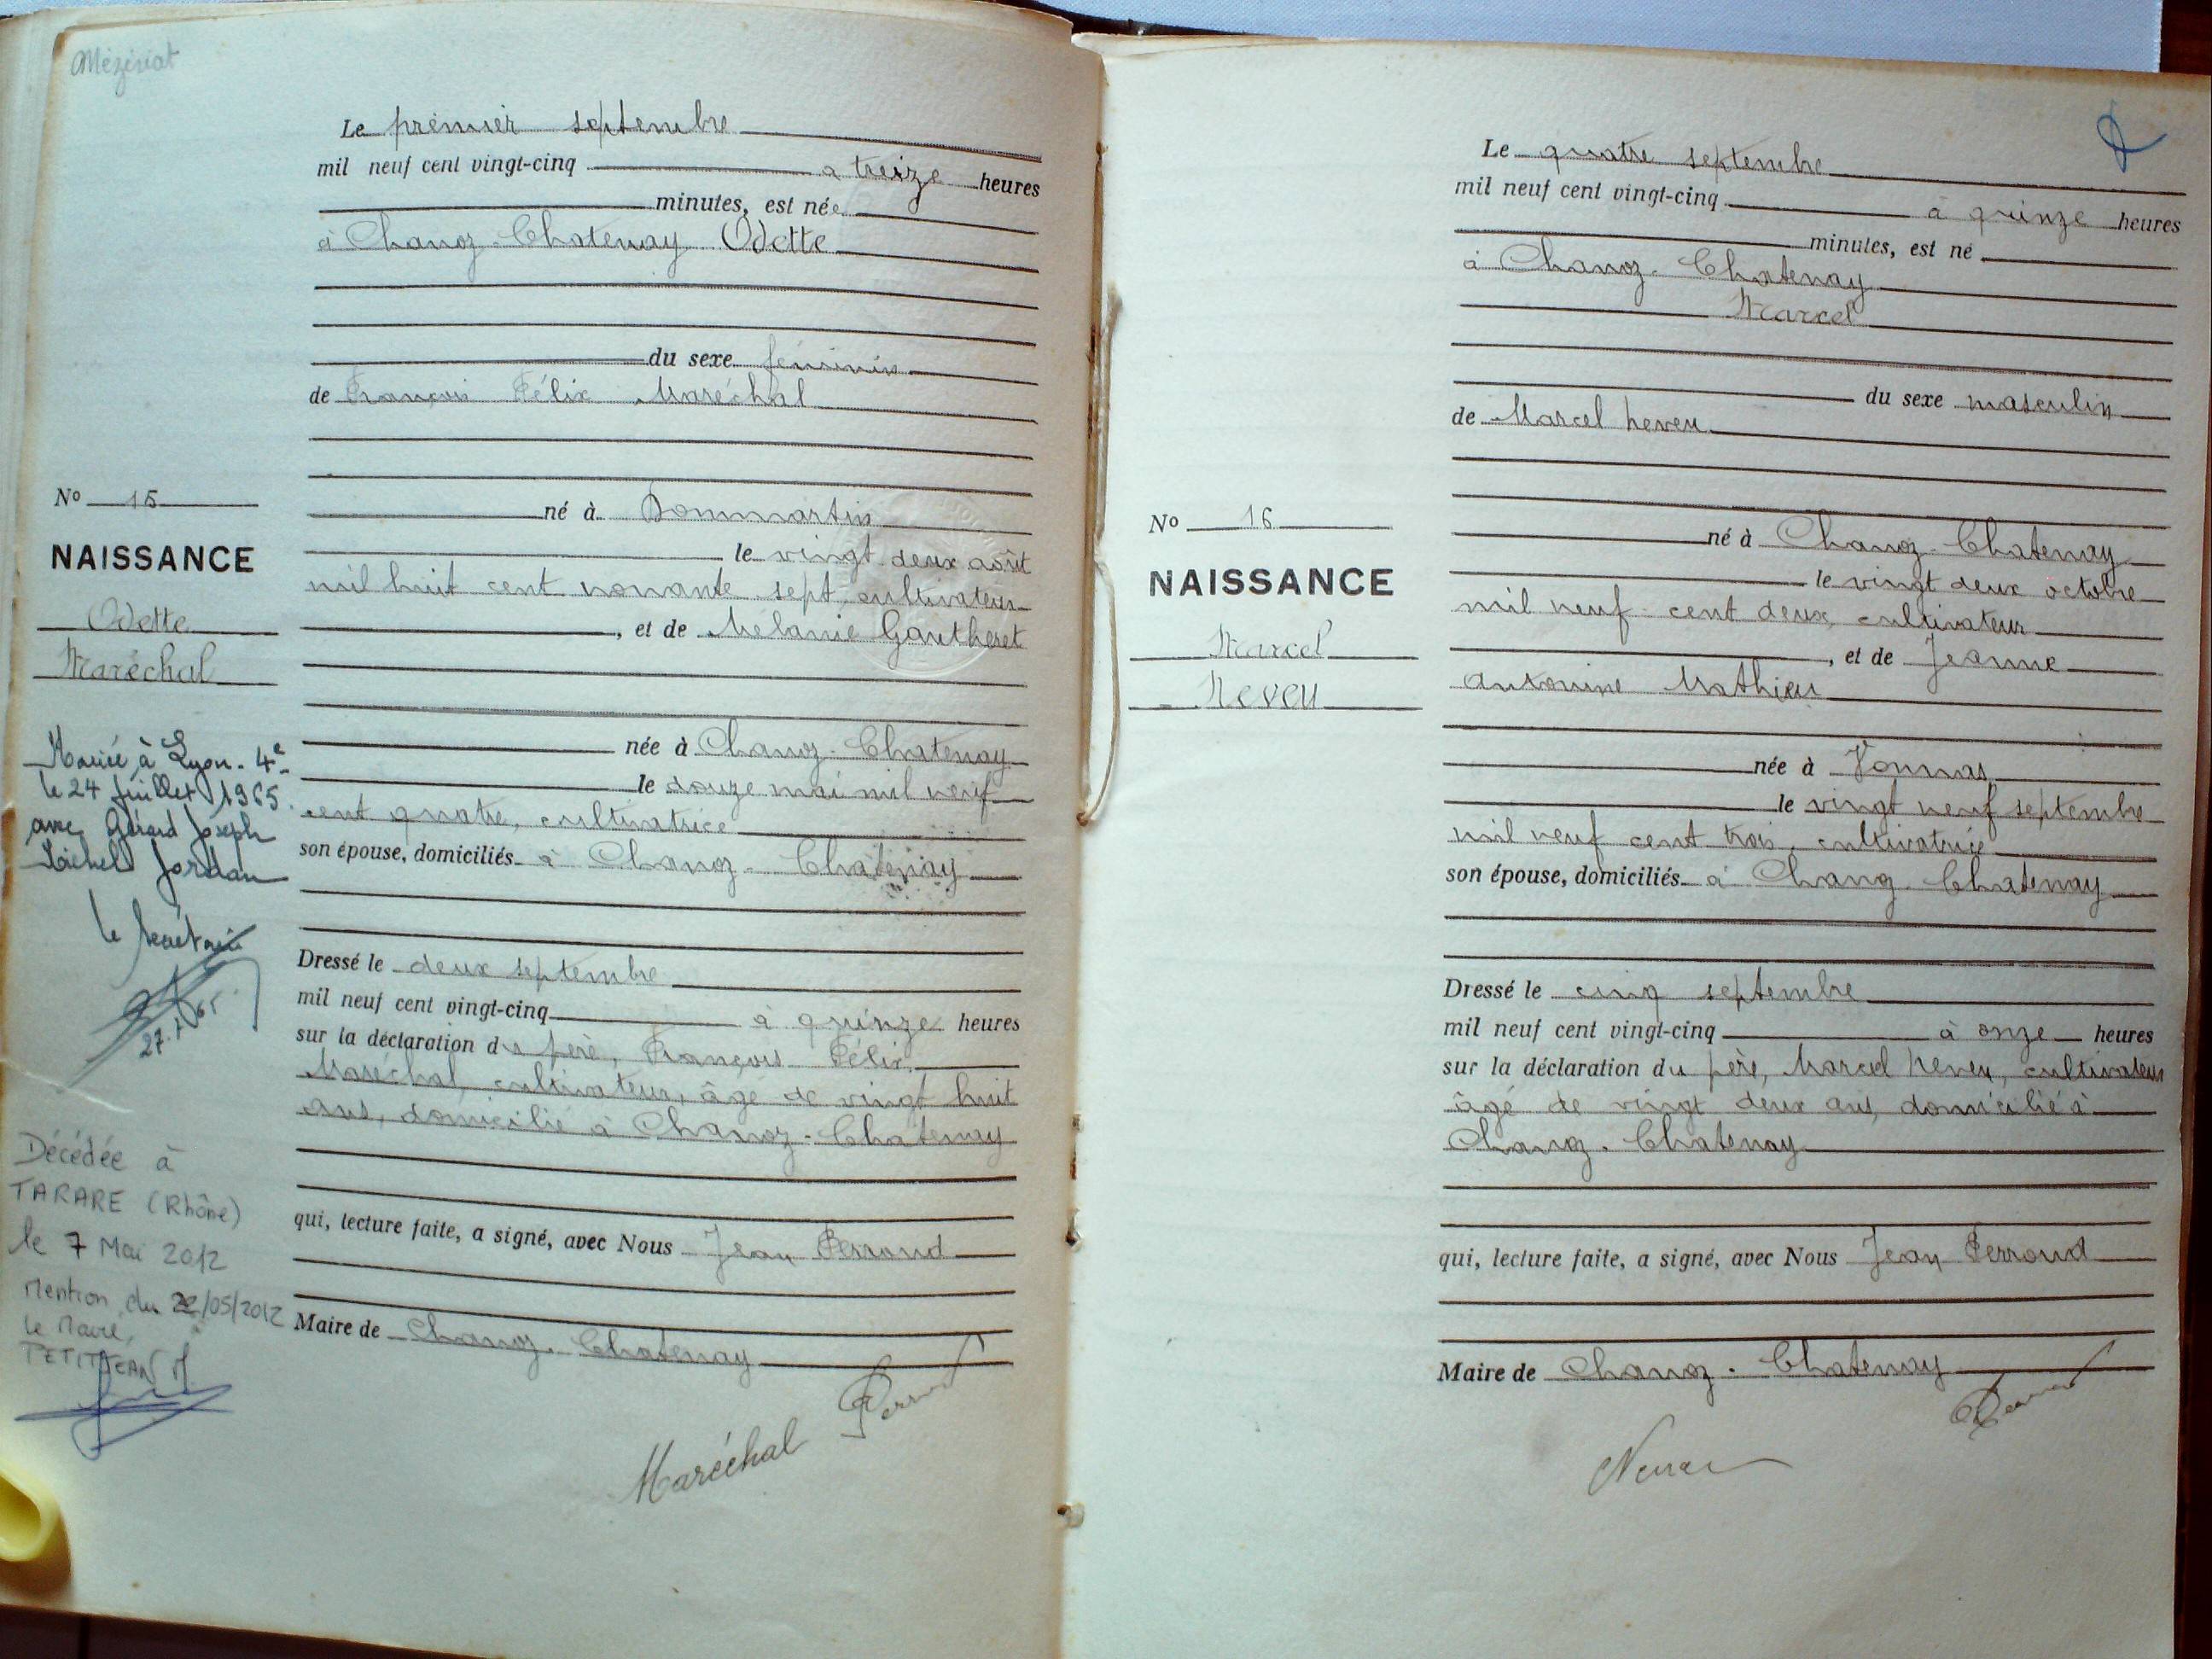 Mézériat
Le premier septembre
mil neuf cent vingt-cinq à treize heures
minutes, est née
à Chanoz-Chatenay Odette
du sexe féminin
de François Félix Maréchal
né à Dommartin
le vingt deux août
mil huit cent nonante sept, cultivateur
, et de Mélanie Gautheret
née à Chanoz-Chatenay
le douze mai mil neuf
cent quatre, cultivatrice
son épouse, domiciliés à Chanoz-Chatenay
Dressé le deux septembre
mil neuf cent vingt-cinq à quinze heures
sur la déclaration du père, François Félix
Maréchal, cultivateur, âgé de vingt huit
ans, domicilié à Chanoz-Chatenay
qui, lecture faite, a signé, avec Nous Jean Perroud
Maire de Chanoz-Chatenay
Maréchal Perroud
No 15
NAISSANCE
Odette
Maréchal
Mariée à Lyon-4e
le 24 Juillet 1965
avec Gérard Joseph
Michel Jordan
le Secrétaire
27.7.65
Décédée à
TARARE (Rhône)
le 7 Mai 2012
Mention du /05/2012
Le Maire,
PETITJEAN M
Le quatre septembre
mil neuf cent vingt-cinq à quinze heures
minutes, est né
à Chanoz-Chatenay
Marcel
du sexe masculin
de Marcel Neveu
né à Chanoz-Chatenay
le vingt deux octobre
mil neuf cent deux, cultivateur
, et de Jeanne
Antonine Mathieu
née à Vonnas
le vingt neuf septembre
mil neuf cent trois, cultivatrice
son épouse, domiciliés à Chanoz-Chatenay
Dressé le cinq septembre
mil neuf cent vingt-cinq à onze heures
sur la déclaration du père, Marcel Neveu, cultivateur
âgé de vingt deux ans, domicilié à
Chanoz-Chatenay
qui, lecture faite, a signé, avec Nous Jean Perroud
Maire de Chanoz-Chatenay
Perroud
Neveu
No 16
NAISSANCE
Marcel
Neveu